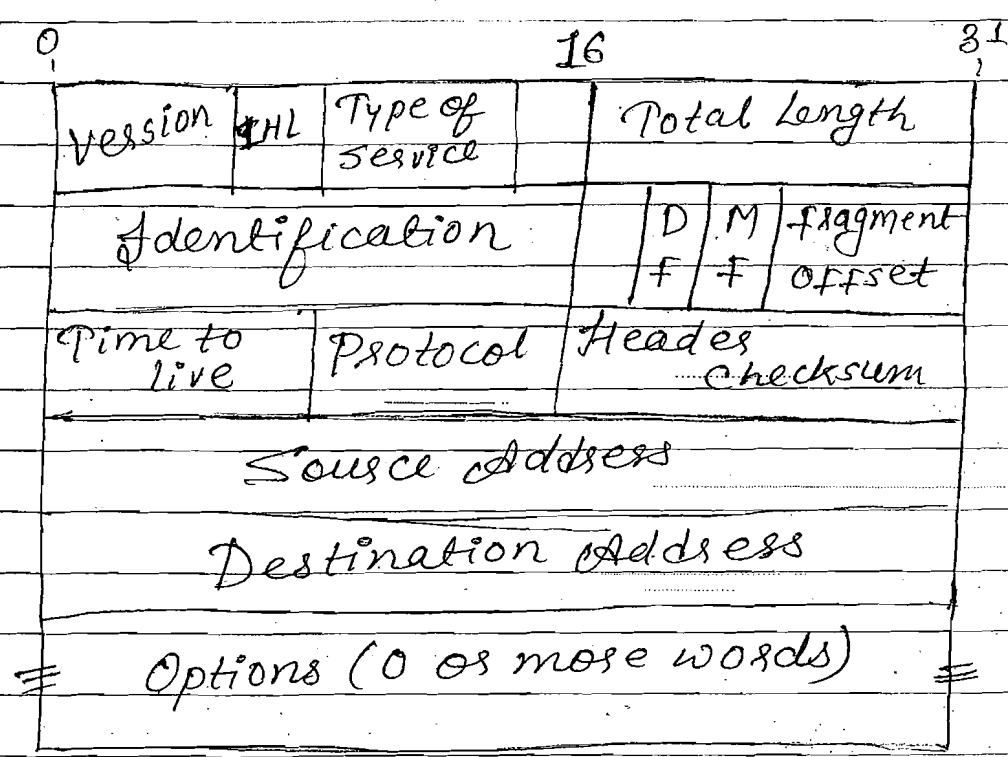 0 16 31
Version IHL Type of Total Length
service
Identification D M fragment
F F offset
Time to Protocol Header
live checksum
Source Address
Destination Address
Options (0 or more words)